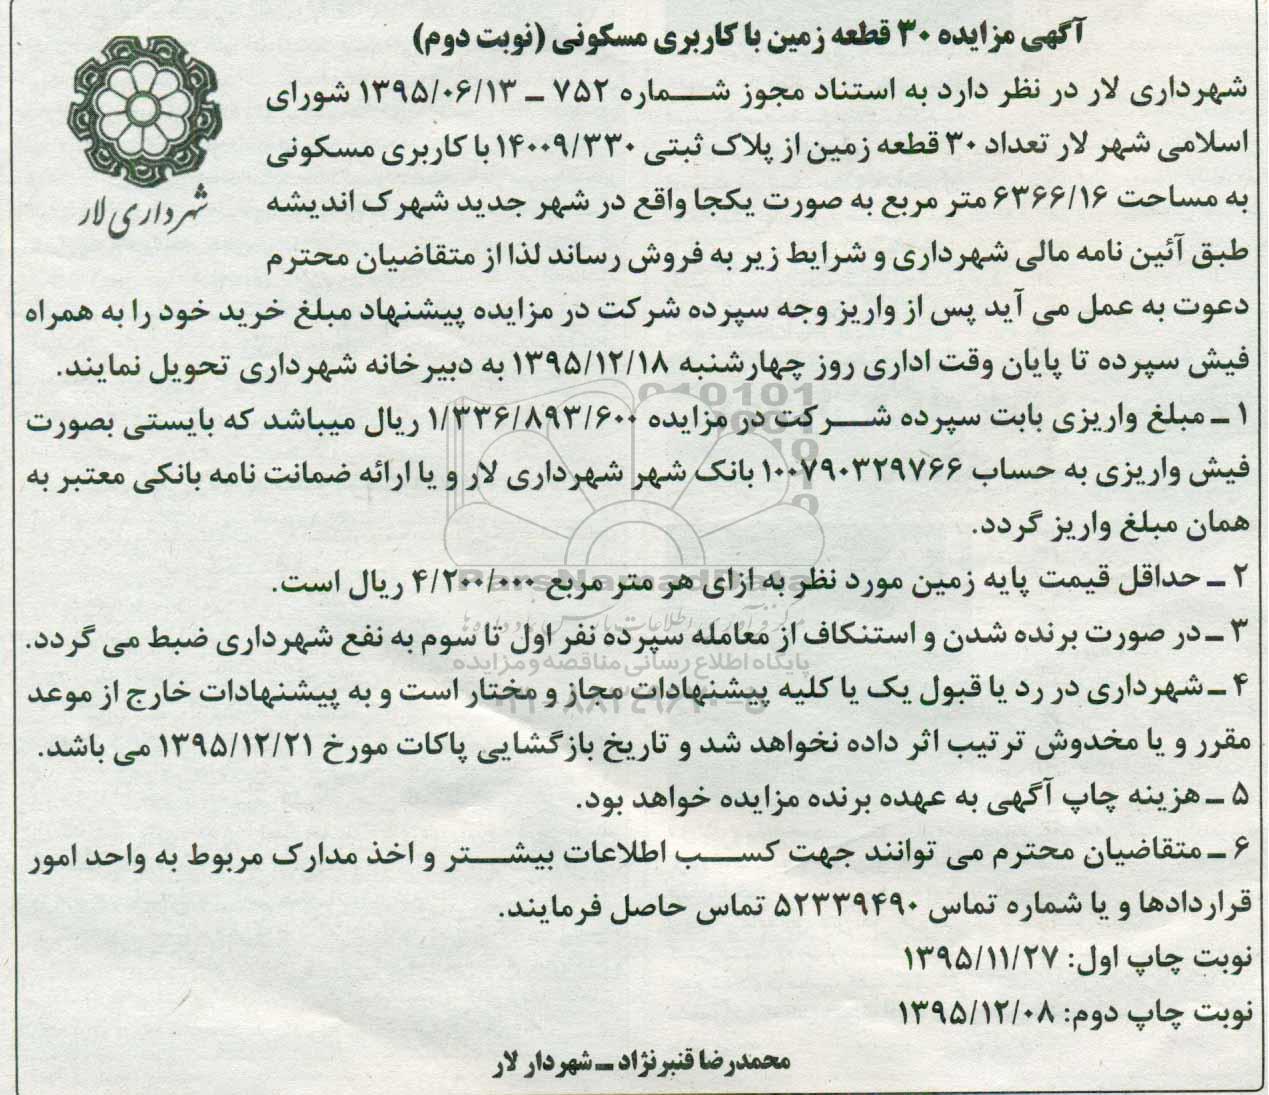 آگهی مزایده ۳۰ قطعه زمین با کاربری مسکونی (نوبت دوم)
شهرداری لار در نظر دارد به استناد مجوز شماره ۷۵۲ ـ ۱۳۹۵/۰۶/۱۳ شورای
اسلامی شهر لار تعداد ۳۰ قطعه زمین از پلاک ثبتی ۱۴۰۰۹/۳۳۰ با کاربری مسکونی
به مساحت ۶۳۶۶/۱۶ متر مربع به صورت یکجا واقع در شهر جدید شهرک اندیشه
طبق آئین نامه مالی شهرداری و شرایط زیر به فروش رساند لذا از متقاضیان محترم
دعوت به عمل می آید پس از واریز وجه سپرده شرکت در مزایده پیشنهاد مبلغ خرید خود را به همراه
فیش سپرده تا پایان وقت اداری روز چهارشنبه ۱۳۹۵/۱۲/۱۸ به دبیرخانه شهرداری تحویل نمایند.
۱ ـ مبلغ واریزی بابت سپرده شرکت در مزایده ۱/۳۳۶/۸۹۳/۶۰۰ ریال میباشد که بایستی بصورت
فیش واریزی به حساب ۱۰۰۷۹۰۳۲۹۷۶۶ بانک شهر شهرداری لار و یا ارائه ضمانت نامه بانکی معتبر به
همان مبلغ واریز گردد.
۲ ـ حداقل قیمت پایه زمین مورد نظر به ازای هر متر مربع ۴/۲۰۰/۰۰۰ ریال است.
۳ ـ در صورت برنده شدن و استنکاف از معامله سپرده نفر اول تا سوم به نفع شهرداری ضبط می گردد.
۴ ـ شهرداری در رد یا قبول یک یا کلیه پیشنهادات مجاز و مختار است و به پیشنهادات خارج از موعد
مقرر و یا مخدوش ترتیب اثر داده نخواهد شد و تاریخ بازگشایی پاکات مورخ ۱۳۹۵/۱۲/۲۱ می باشد.
۵ ـ هزینه چاپ آگهی به عهده برنده مزایده خواهد بود.
۶ ـ متقاضیان محترم می توانند جهت کسب اطلاعات بیشتر و اخذ مدارک مربوط به واحد امور
قراردادها و یا شماره تماس ۵۲۳۳۹۴۹۰ تماس حاصل فرمایند.
نوبت چاپ اول: ۱۳۹۵/۱۱/۲۷
نوبت چاپ دوم: ۱۳۹۵/۱۲/۰۸
محمدرضا قنبرنژاد ـ شهردار لار
شهرداری لار
ParsNamadData
پایگاه اطلاع رسانی مناقصه و مزایده